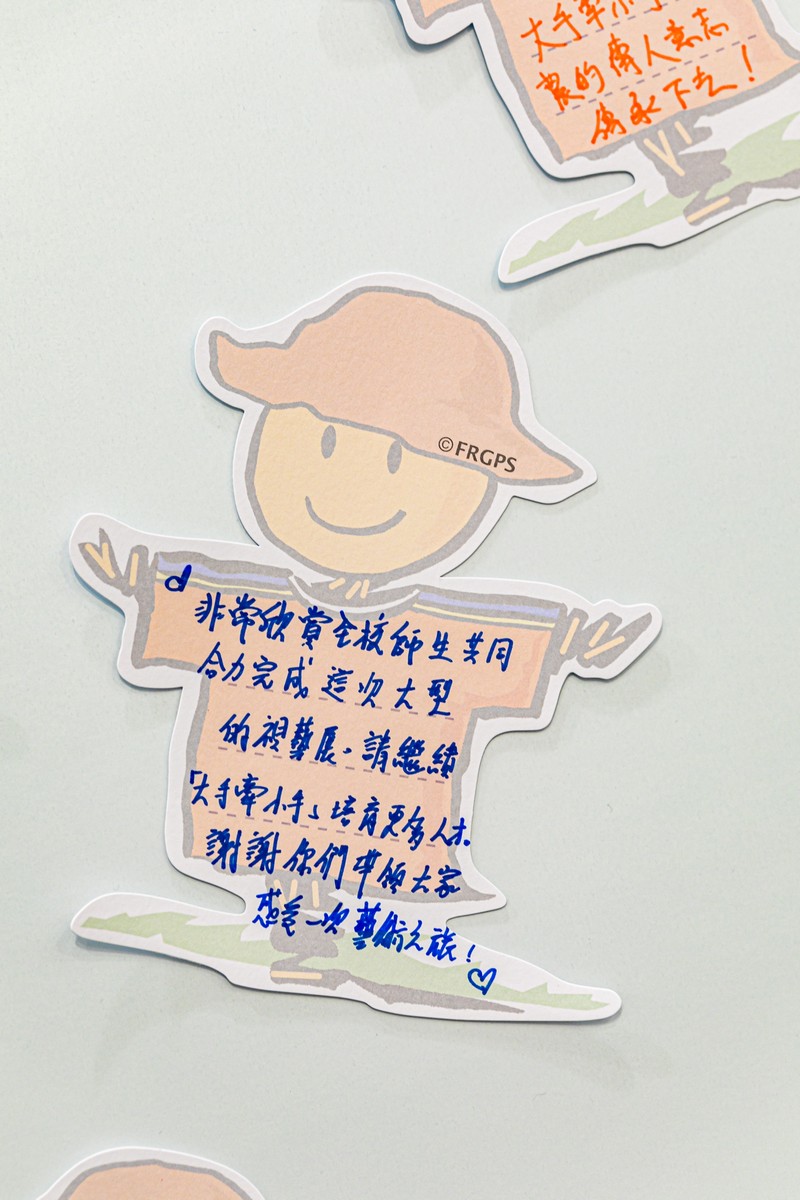 大手牽小手
農的傳人意志
傳承下去！
©FRGPS
d
非常欣賞全校師生共同
合力完成這次大型
的視藝展。請繼續
「大手牽小手」培育更多人才。
謝謝你們準領大家
感受一次藝術之旅！